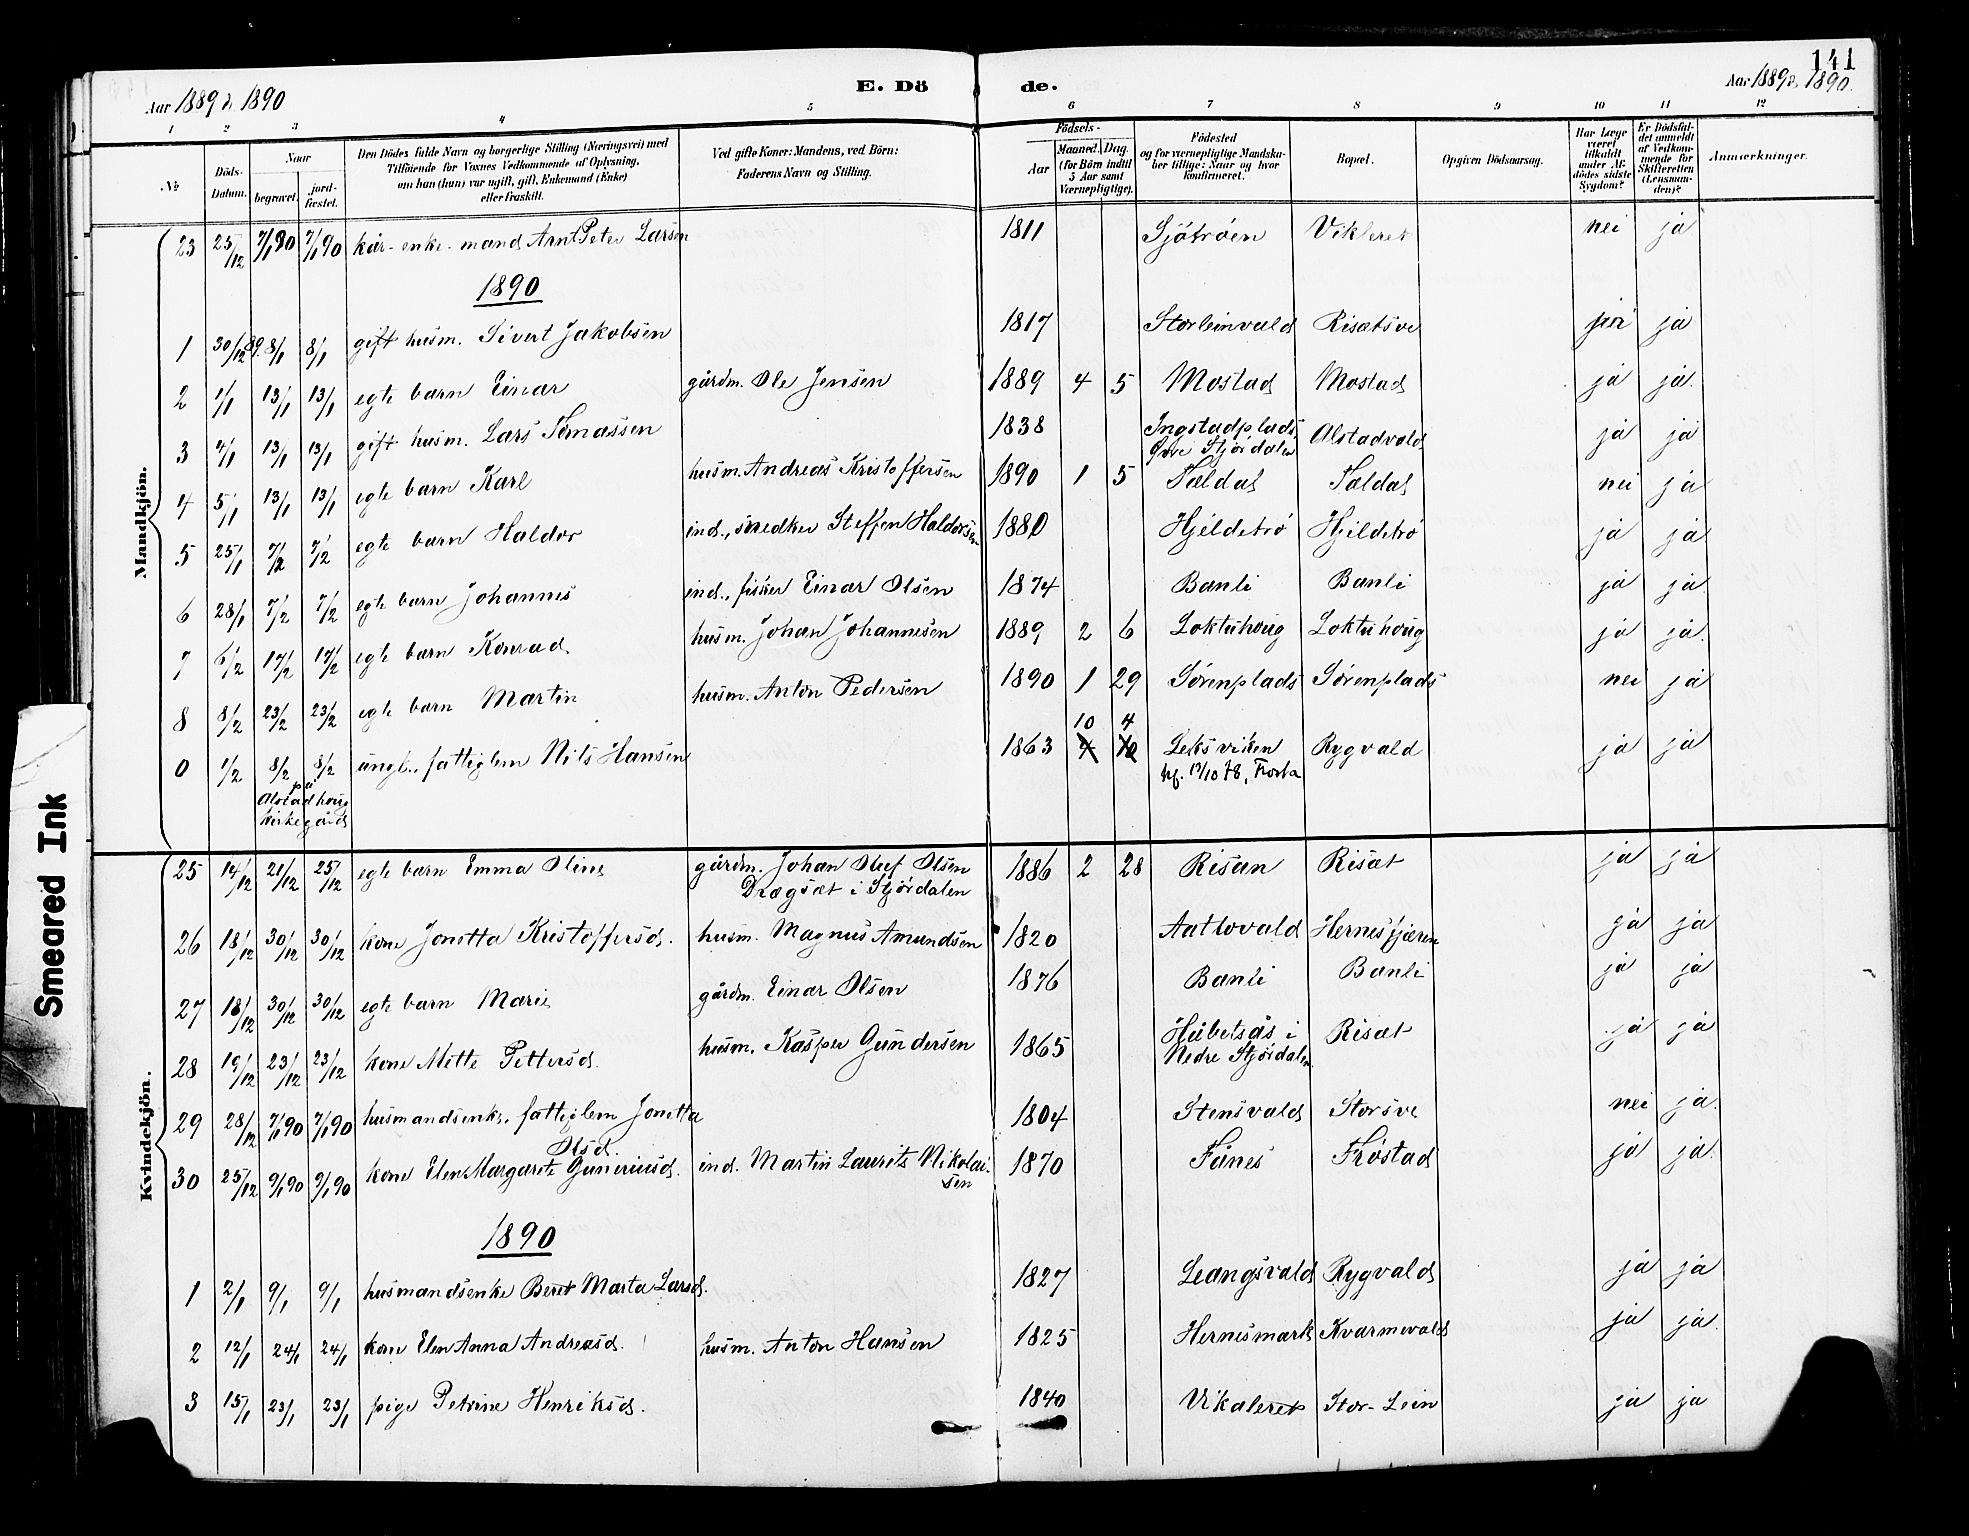 141
Aar 1889 & 1890
E. Dö
de.
Aar 1889 & 1890.
1 2 3 4 5 6 7 8 9 10 11 12
No
Döds-Datum.
Naar
begravet.
jord-fæstet.
Den Dödes fulde Navn og borgerlige Stilling (Næringsvei) med
Tilföiende for Voxnes Vedkommende af Oplysning,
om han (hun) var ugift, gift, Enkemand (Enke)
eller fraskilt.
Ved gifte Koner: Mandens, ved Börn:
Faderens Navn og Stilling.
Födsels-
Aar
Maaned. Dag.
(for Börn indtil
5 Aar samt
Værnepligtige).
Födested
og for værnepligtige Mandska-
ber tillige: Naar og hvor
konfirmeret.
Bopæl.
Opgiven Dödsaarsag.
Har Læge
været
tilkaldt
under Af-
dödes sidste
Sygdom?
Er Dödsfal-
det anmeldt
af Vedkom-
mende for
Skifteretten
(Lensman-
den)?
Anmærkninger.
Mandkjön.
23 25/12 7/1 90 7/1 90 kår-enke-mand Arnt Peter Larsen 1811 Sjötröen Vikleret nei ja
1890
1 30/12 89. 8/1 8/1 gift husm. Sivert Jakobsen 1817 Storleinvald Risætsve ja
2 1/1 13/1 13/1 egte barn Einar gårdm. Ole Jensen 1889 4 5 Mostad Mostad ja ja.
3 4/1 13/1 13/1 gift husm. Lars Tomassen 1838 Ingstadplads, Alstadvald ja ja
Övre Stjördalen
4 5/1 13/1 13/1 egte barn Karl husm. Andreas Kristoffersen 1890 1 5 Faldal Faldal nei ja
5 25/1 7/2 7/2 egte barn Haldor ind., snedker Steffen Haldorsen 1880 Hjeldetrö Hjeldetrö ja ja
6 28/1 7/2 7/2 egte barn Johannes ind., fisker Einar Olsen 1874 Banli Banli ja ja.
7 6/2 17/2 17/2 egte barn Konrad husm. Johan Johannesen 1889 2 6 Loktuhoug Loktuhoug ja ja.
8 8/2 23/2 23/2 egte barn Martin husm. Anton Pedersen 1890 1 29 Sörenplads Sörenplads nei ja
10 4
0 1/2 8/2 8/2 ungk., fattiglem Nils Hansen 1863 Leksviken Rygvald ja ja
på
Alstadhoug
kirkegård
kf. 13/10 78, Frosta
Kvindekjön.
25 14/12 21/12 25/12 egte barn Emma Oline gårdm. Johan Oluf Olsen 1886 2 28 Risan Risæt ja ja
Dragsæt i Stjördalen
26 18/12 30/12 30/12 kone Jonetta Kristoffersd. husm. Magnus Amundsen 1820 Aatlovald Hernesfjæren ja ja
27 18/12 30/12 30/12 egte barn Marie gårdm. Einar Olsen 1876 Banli Banli ja ja
28 19/12 23/12 23/12 kone Mette Pettersd. husm. Kasper Gundersen 1865 Hubetsås i Risæt ja ja
Nedre Stjördalen
29 28/12 7/1 90 7/1 90 husmandsenke, fattiglem Jonetta 1804 Stensvald Storsve nei ja.
Olsd.
30 25/12 9/1 90 9/1 90 kone Elen Margarete Guneriusd. ind. Martin Laurits Nikolai- 1870 Fånes Fröstad ja ja.
sen
1890
1 2/1 9/1 9/1 husmandsenke Beret Marta Larsd. 1827 Leangsvald Rygvald ja ja
2 12/1 24/1 24/1 kone Elen Anna Andreasd. husm. Anton Hansen 1825 Hernesmark Kvarmevald ja ja.
3 15/1 23/1 23/1 pige Petrine Henriksd. 1840 Vikaleret Stor-Lein ja ja
Smeared Ink